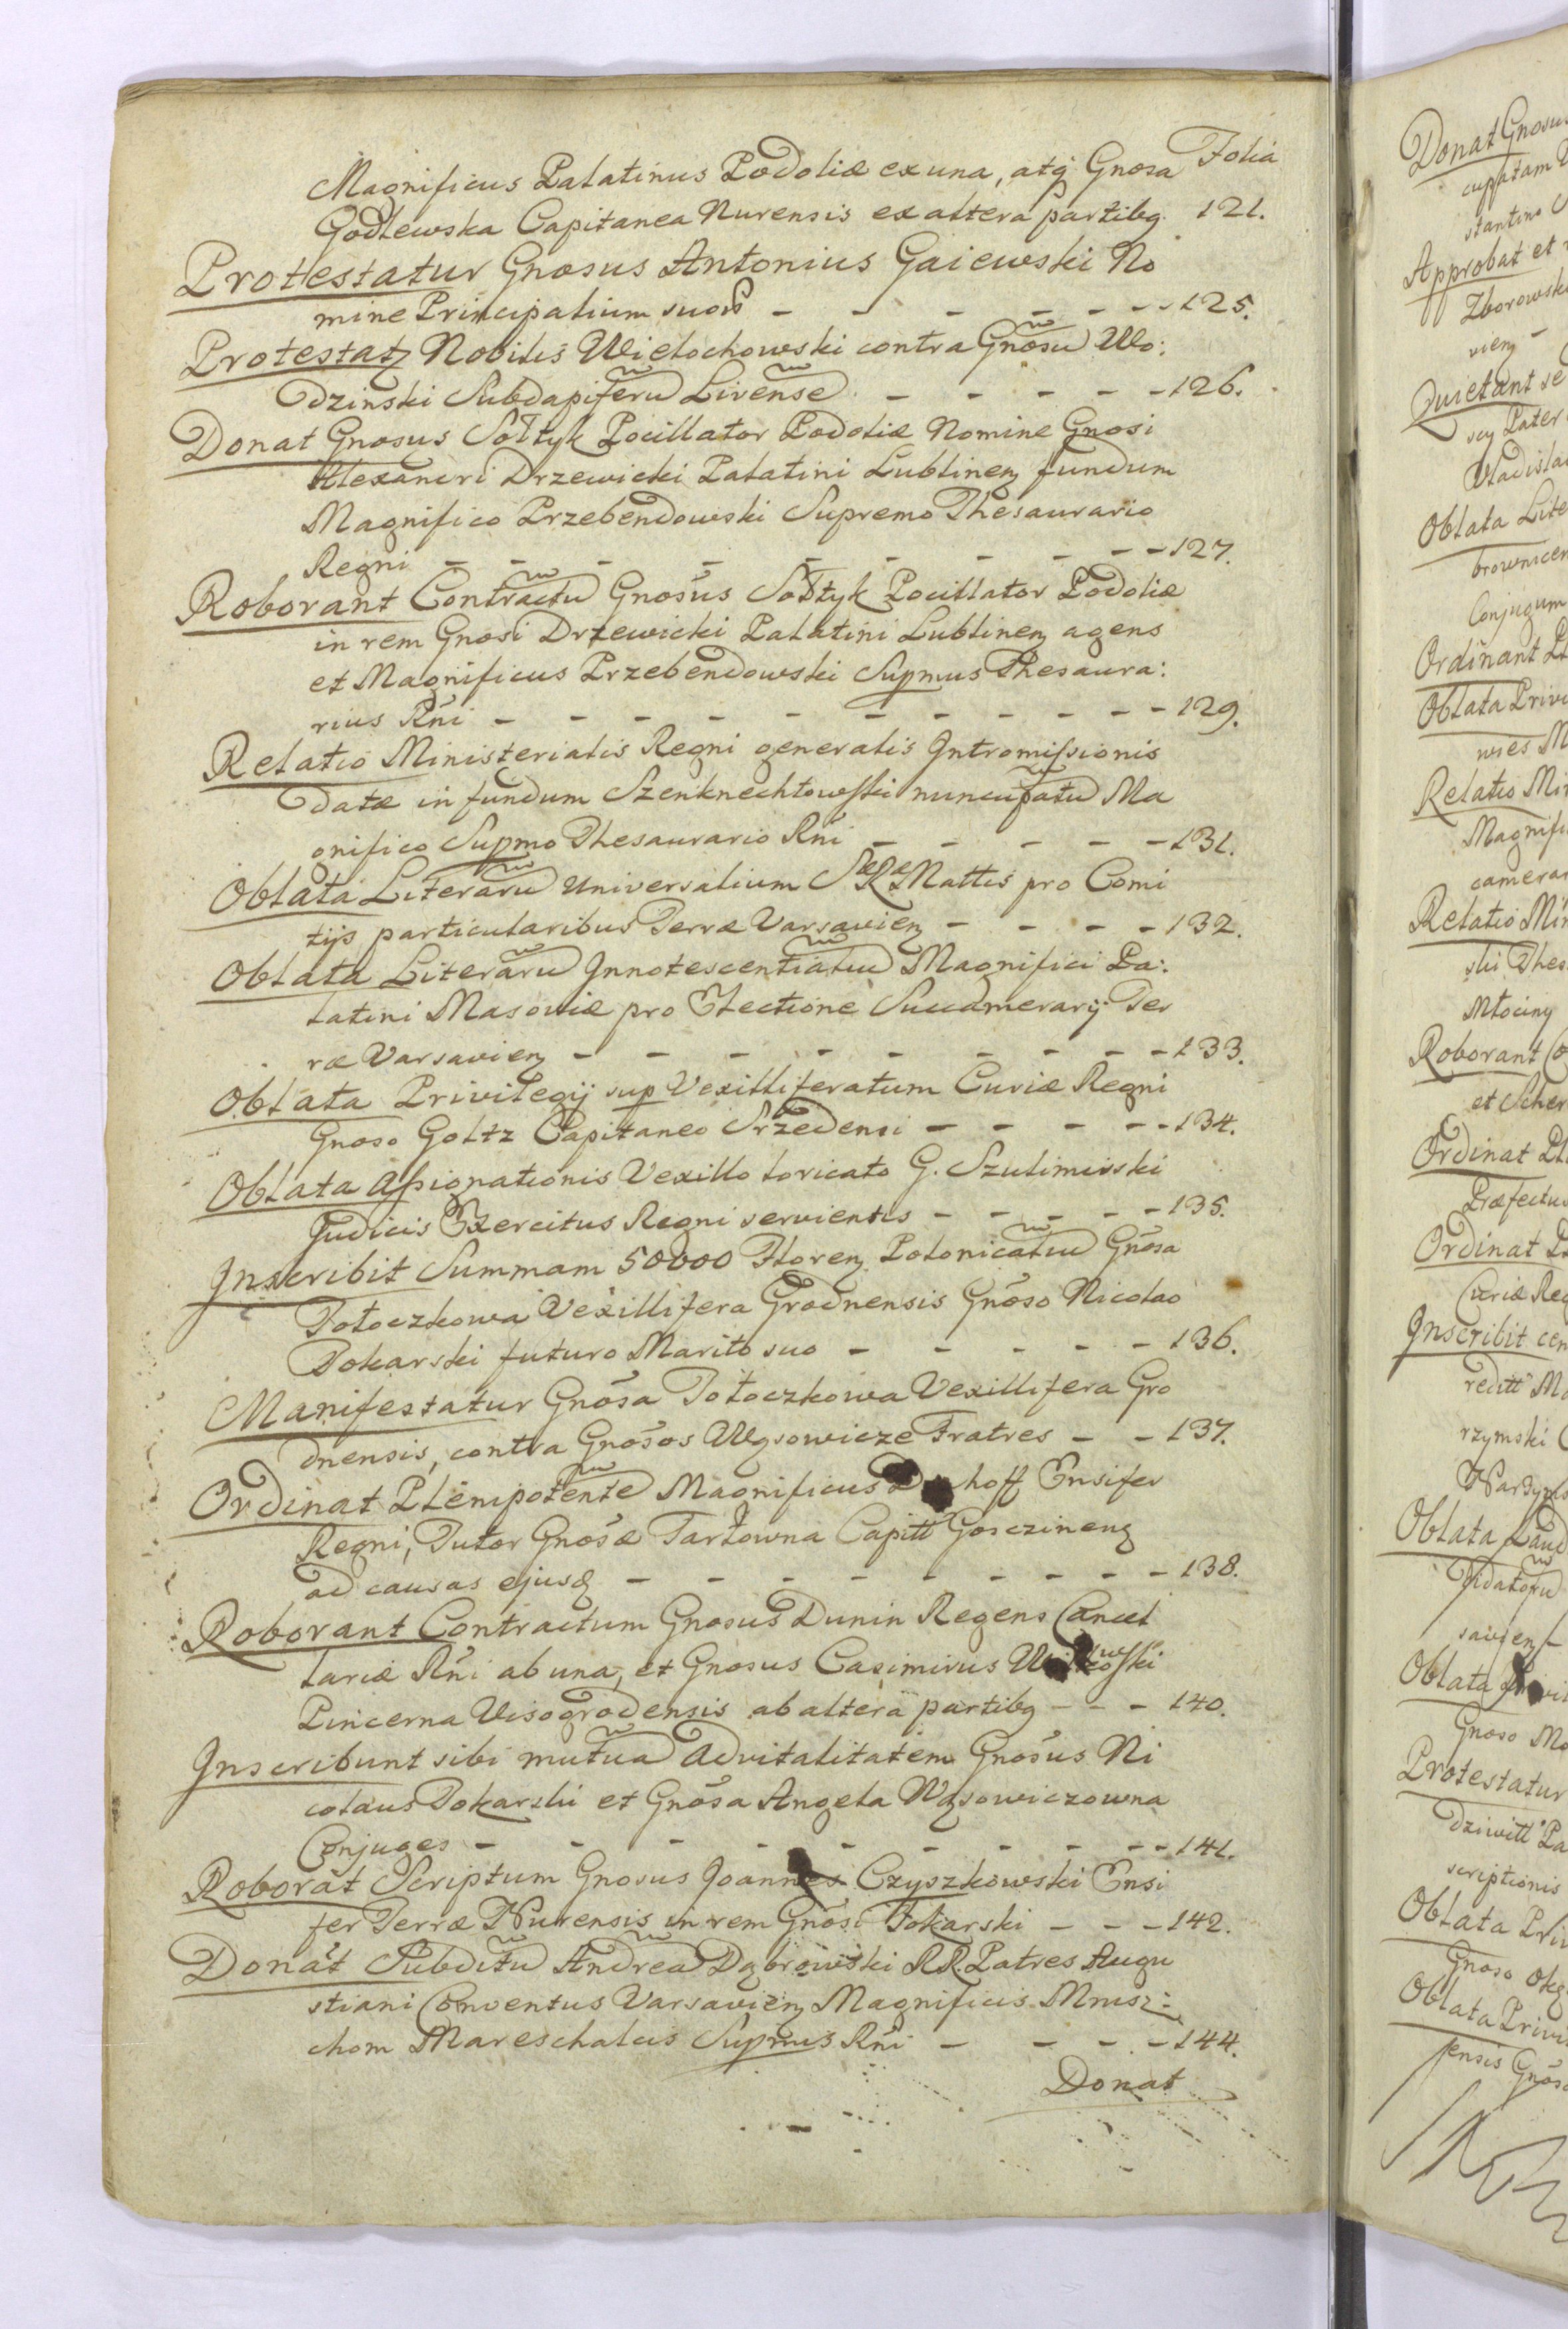 Folia
Magnificus Palatinus Podoliæ ex una, atq Gnosa
Godlewska Capitanea Nurensis ex altera partibq 121.
Protestatur Gnosus Antonius Gaiewski No
mine Principalium suor - - - - - - 125.
Protestatz Nobilis Wielochowski contra Gnosu Wo:
dzinski Subdapiferu Livense - - - - - 126.
Donat Gnosus Sołtyk Pocillator Podoliæ Nomine Gnosi
Alexandri Drzewicki Palatini Lublinen fundum
Magnifico Przebendowski Supremo Thesaurario
Regni - - - - - - - - - 127.
Roborant Contractu Gnosus Sołtyk Pocillator Podoliæ
in rem Gnosi Drzewicki Palatini Lublinen agens
et Magnificus Przebendowski Supmus Thesaura:
rius Rñi - - - - - - - - - 129.
Relatio Ministerialis Regni generalis Intromissionis
datæ in fundum Szenknechtowski nuncupatu Ma
gnifico Supmo Thesaurario Rñi - - - - - 131.
Oblata Literaru Universalium Sæ Ræ Mattis pro Comi
tijs particularibus Terræ Varsavien - - - - 132.
Oblata Literaru Innotescentiatu Magnifici Pa:
latini Masoviæ pro Electione Succamerarij Ter
ræ Varsavien - - - - - - - - 133.
Oblata Privilegij sup Vexilliferatum Curiæ Regni
Gnoso Goltz Capitaneo Srzedensi - - - - - 134.
Oblata Assignationis Vexillo loricato G. Szulimirski
Judicis Exercitus Regni servientis - - - - - 135.
Inscribit Summam 50000 Floren Polonicatiu Gnosa
Potoczkowa Vexillifera Grodnensis Gnoso Nicolao
Tokarski futuro Marito suo - - - - - 136.
Manifestatur Gnosa Potoczkowa Vexillifera Gro
dnensis, contra Gnosos Wąsowicze Fratres - - 137.
Ordinat Plenipotente Magnificus hoff Ensifer
Regni, Tutor Gnosæ Tarłowna Capitt Gosczinens
ad causas ejusq - - - - - - - - 138.
Roborant Contractum Gnosus Dunin Regens Cancel
lariæ Rñi ab una, et Gnosus Casimirus
Pincerna Visogrodensis ab altera partibq - - - 140.
Inscribunt sibi mutua Advitalitatem Gnosus Ni
colaus Tokarski et Gnosa Angela Wąsowiczowna
Conjuges - - - - - - - - - 141.
Roborat Scriptum Gnosus Joannes Czyszkowski Ensi
fer Terræ Nurensis in rem Gnosi Tokarski - - - 142.
Donat Subditu Andrea Dąbrowski RR. Patres Augu
stiani Conventus Varsavien Magnificis Mnisz:
chom Mareschalcis Supmis Rñi - - - - 144.
Donat
Donat Gnosus
stantino
Approbat et
Zborowski
Quietant se
Pater
Vladisla
Oblata Lite
Conjugum
Ordinant Pl
Oblata Privi
Relatio Min
Magnifi
camerar
Relatio Min
ski Thes
Młociny
Roborant Co
et Scher
Ordinat Pl
Præfectus
Ordinat Pl
Curiæ Reg
Inscribit cen
reditt Ma
rzymski
Oblata Laud
Oblata
Gnoso Mo
Protestatur
scriptionis
Oblata Pri
Gnoso
Oblata Privi